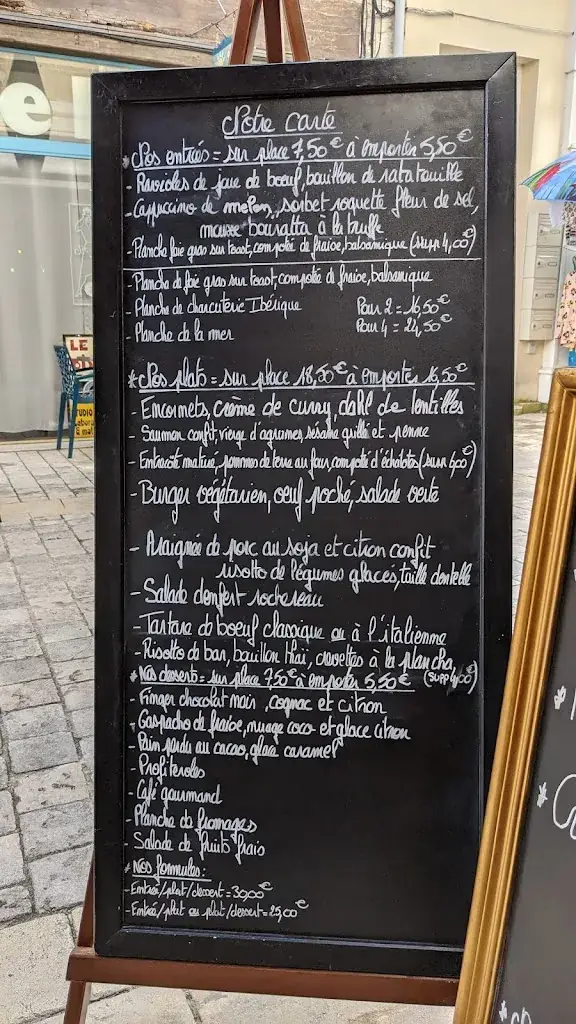 Notre carte
* Nos entrées = sur place 7,50€ à emporter 5,50€
- Ravioles de joue de boeuf, bouillon de ratatouille
- Cappuccino de melon, sorbet roquette fleur de sel,
mousse bouratta à la truffe
- Planche foie gras sur toast, compotée de fraise, balsamique (supp 4,00€)
- Planche de foie gras sur toast, compotée de fraise, balsamique
- Planche de charcuterie Ibérique Pour 2 = 16,50€
- Planche de la mer Pour 4 = 24,50€
* Nos plats = sur place 18,50€ à emporter 16,50€
- Encornets, crème de curry, dahl de lentilles
- Saumon confit, vierge d'agrumes, sésame grillé et penne
- Entrecôte maturé, pomme de terre au four, compoté d'échalotes (supp
- Burger végétarien, oeuf poché, salade verte
- Araignée de porc au soja et citron confit
risotto de légumes glacés, tuille dentelle
- Salade denfert rochereau
- Tartare de boeuf classique ou à l'italienne
- Risotto de bar, bouillon thaï, crevettes à la plancha,
* Nos dessert = sur place 7,50€ à emporter 5,50€ (supp 4,00€)
- Finger chocolat noir, cognac et citron
- Gaspacho de fraise, nuage coco et glace citron
- Pain perdu au cacao, glace caramel
- Profiteroles
- Café gourmand
- Planche de fromages
- Salade de fruits frais
* Nos formules :
- Entrée/plat/dessert = 30,00€
- Entrée/plat ou plat/dessert = 25,00€
LE
STUDIO